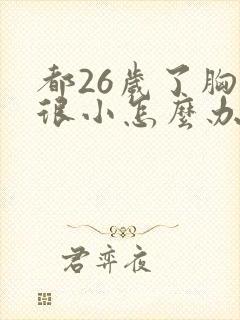 都26歲了胸
很小怎麼办
君弈夜